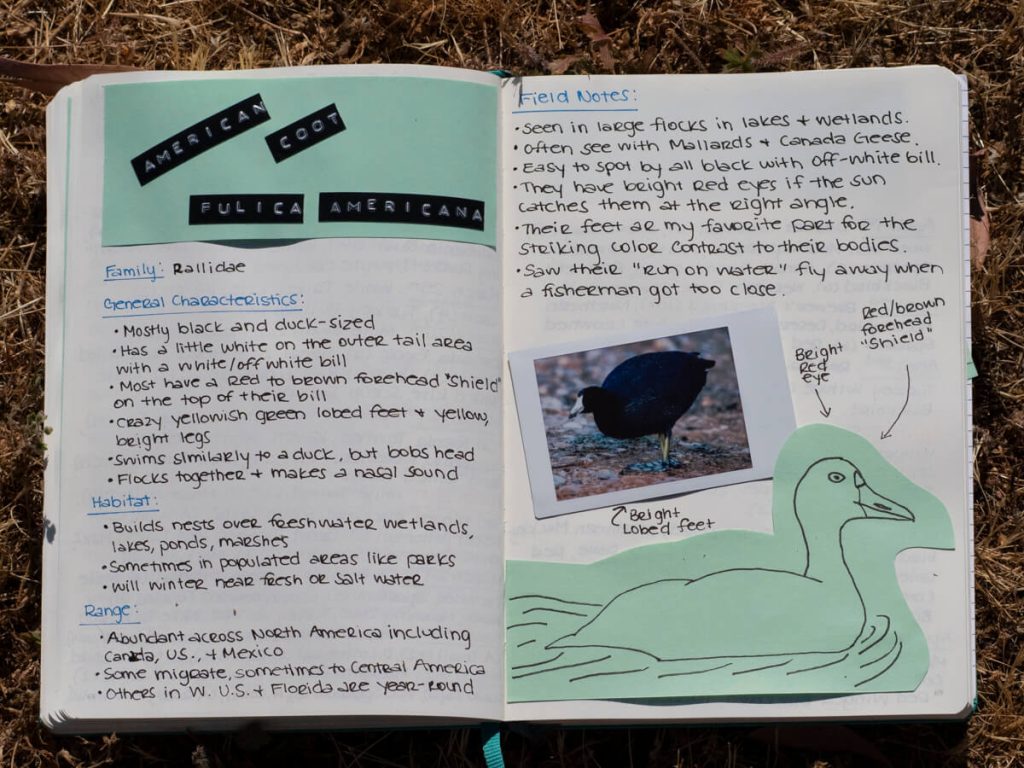 AMERICAN COOT
FULICA AMERICANA
Family: Rallidae
General Characteristics:
• Mostly black and duck-sized
• Has a little white on the outer tail area
with a white/off white bill
• Most have a red to brown forehead "Shield"
on the top of their bill
• Crazy yellowish green lobed feet + yellow,
bright legs
• Swims similarly to a duck, but bobs head
• Flocks together + makes a nasal sound
Habitat:
• Builds nests over freshwater wetlands,
lakes, ponds, marshes
• Sometimes in populated areas like parks
• will winter near fresh or salt water
Range:
• Abundant across North America including
Canada, U.S., + Mexico
• Some migrate, sometimes to Central America
• Others in W. U.S. + Florida are year-round
Field Notes:
• Seen in large flocks in lakes + wetlands.
• Often see with Mallards + Canada Geese.
• Easy to spot by all black with off-white bill.
• They have bright red eyes if the sun
catches them at the right angle.
• Their feet ar my favorite part for the
striking color contrast to their bodies.
• Saw their "run on water" fly away when
a fisherman got too close.
Red/brown
forehead
"Shield"
Bright
Red
eye
Bright
Lobed feet